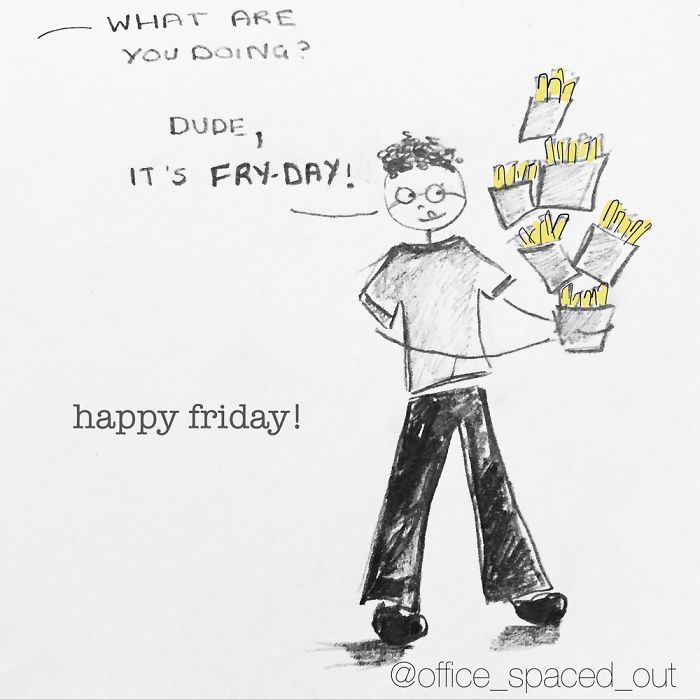 WHAT ARE
YOU DOING?
DUDE,
IT'S FRY-DAY!
happy friday!
@office_spaced_out